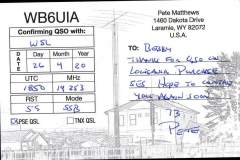 WB6UIA
Pete Matthews
1460 Dakota Drive
Laramie, WY 82072
U.S.A.
Confirming QSO with:
W5L
TO: BOBBY
DATE Day Month Year
26 4 20
THANK FOR QSO ON
LOUISIANA PURCHASE
SES HOPE TO CONTACT
YOU AGAIN SOON
UTC MHz
1850 14.253
RST Mode
59 SSB
73
PSE QSL TNX QSL
PETE